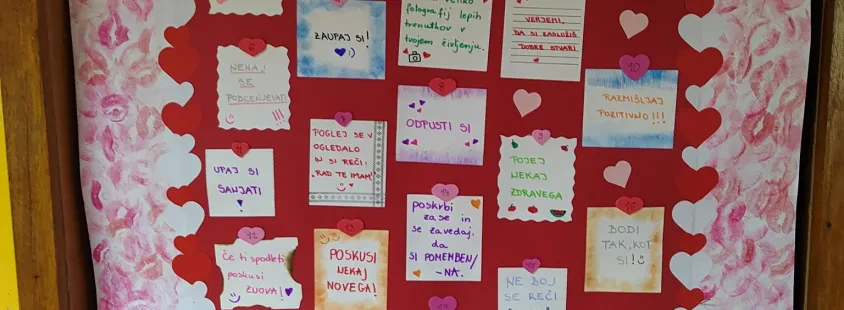 ZAUPAJ SI! :)
VELIKO
FOTOGRAFIJ LEPIH
TRENUTKOV V
TVOJEM ŽIVLJENJU.
VERJEMI,
DA SI ZASLUŽIŠ
DOBRE STVARI
6
NEHAJ
SE
PODCENJEVATI
!!!
7
POGLEJ SE V
OGLEDALO
IN SI REČI:
"RAD TE IMAM"
8
ODPUSTI SI
9
POJEJ
NEKAJ
ZDRAVEGA
10
RAZMIŠLJAJ
POZITIVNO!!!
UPAJ SI
SANJATI
12
Če ti spodleti
poskusi
ZNOVA!
13
POSKUSI
NEKAJ
NOVEGA!
14
poskrbi
zase in
se zavedaj,
da
SI POMEMBEN/
-NA.
NE BOJ
SE REČI
BODI
TAK, KOT
SI!